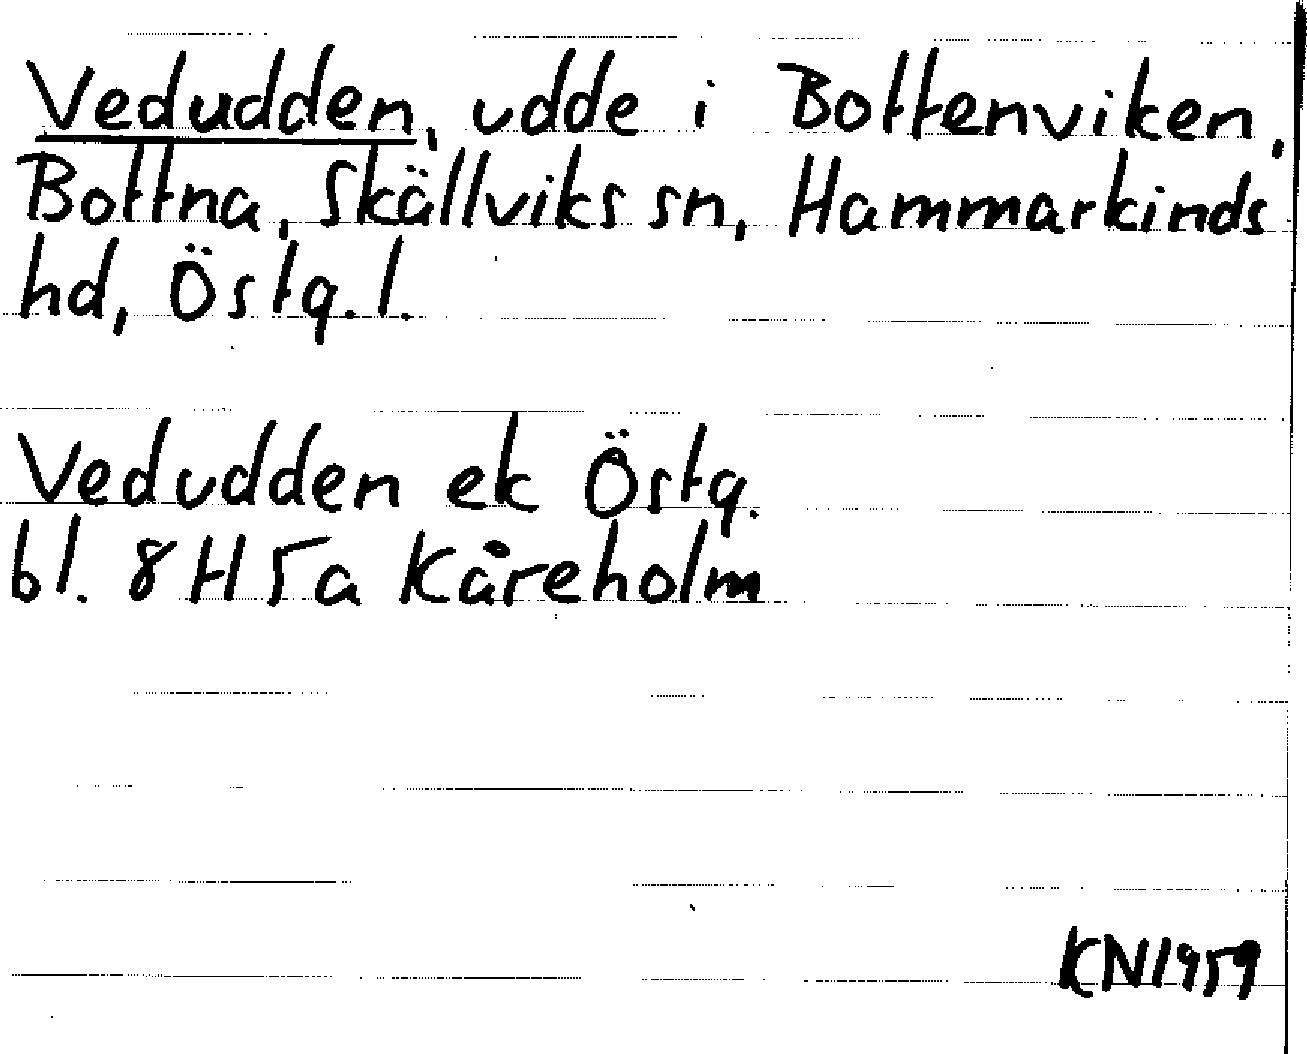 Vedudden, udde i Bottenviken,
Bottna, Skällviks sn, Hammarkinds
hd, Östg. l.
Vedudden ek Östg.
bl. 8H 5a Kåreholm
KN 1959